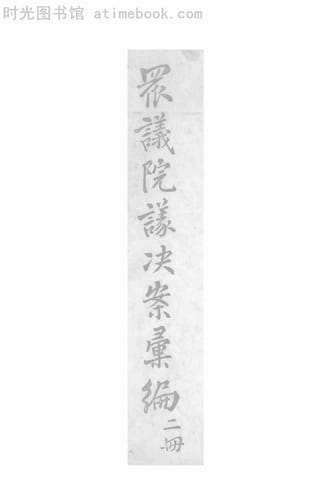 时光图书馆 atimebook.com
眾議院議决案彙編
二冊